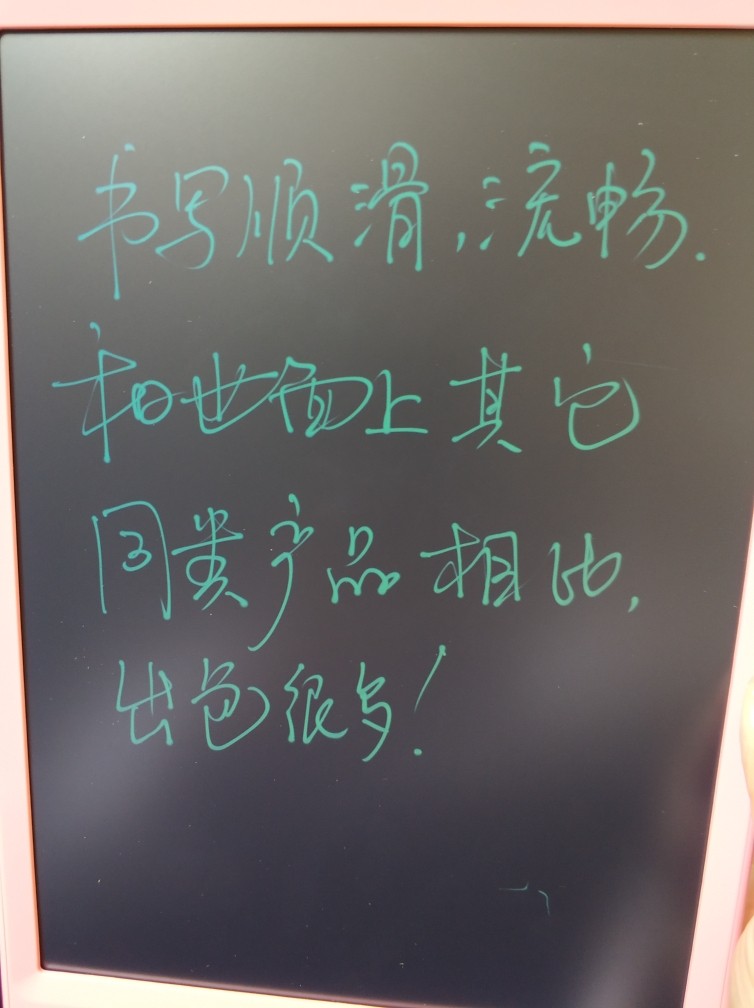 书写顺滑,流畅.
和世面上其它
同类产品相比,
出色很多!